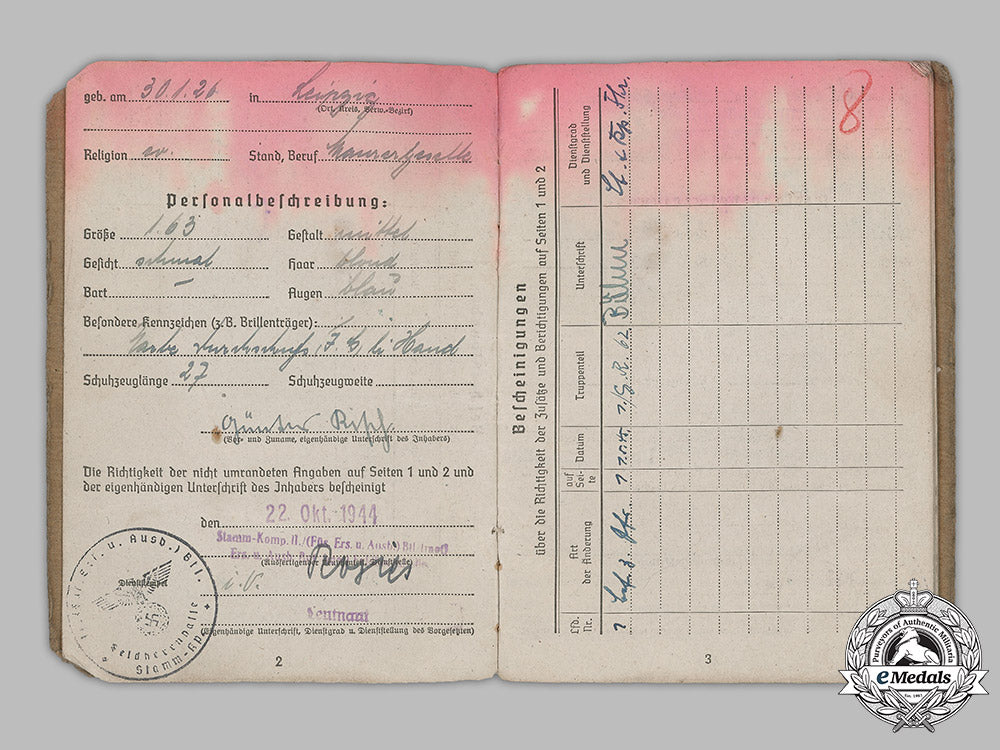 geb. am 30.1.26 in Leipzig
(Ort, Kreis, Verw.-Bezirf)
Religion ev. Stand, Beruf Maurergeselle
Personalbeschreibung:
Größe 1.63 Gestalt mittel
Gesicht schmal Haar blond
Bart – Augen blau
Besondere Kennzeichen (z/B. Brillenträger):
Narbe Durchschuß, li Hand
Schuhzeuglänge 27 Schuhzeugweite
Günter Risch
(Vor- und Zuname, eigenhändige Unterschrift des Inhabers)
Die Richtigkeit der nicht umrandeten Angaben auf Seiten 1 und 2 und
der eigenhändigen Unterschrift des Inhabers bescheinigt
den 22. Okt. 1944
Stamm-Komp. II./(Füs. Ers. u. Ausb.) Btl.
Ers. u. Ausb.
i.V.
Dienststempel
Leutnant
(Eigenhändige Unterschrift, Dienstgrad u. Dienststellung des Vorgesetzten)
Ers. u. Ausb.) Btl.
Feldherrnhalle
Stamm-Kp
2
8
Bescheinigungen
über die Richtigkeit der Zusätze und Berichtigungen auf Seiten 1 und 2
Lfd. Nr.
Art der Änderung
auf Seite
Datum
Truppenteil
Unterschrift
Dienstgrad und Dienststellung
1 1 62 Lt. u. Kp. Fhr.
3
Purveyors of Authentic Militaria
eMedals
Est. 1967